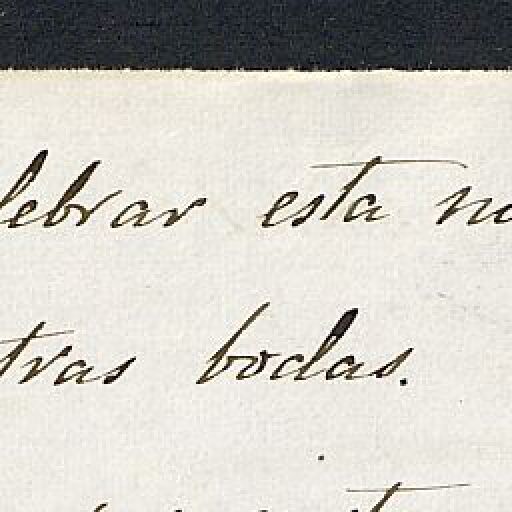 lebrar esta no
tras bodas.